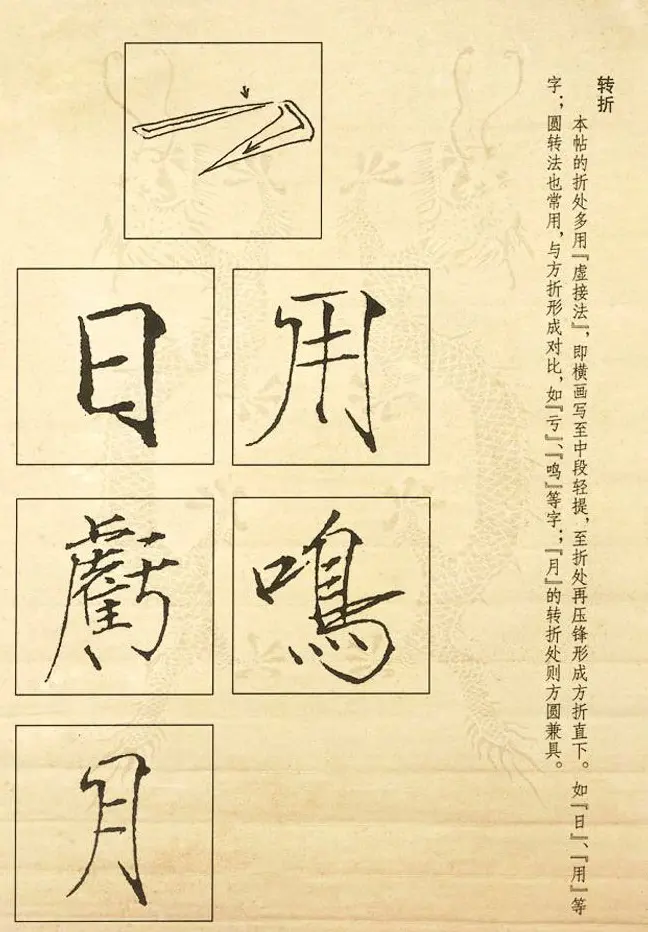 转折
本帖的折处多用『虚接法』，即横画写至中段轻提，至折处再压锋形成方折直下。如『日』、『用』等
字；圆转法也常用，与方折形成对比，如『亏』、『鸣』等字；『月』的转折处则方圆兼具。
用
日
鳴
虧
月